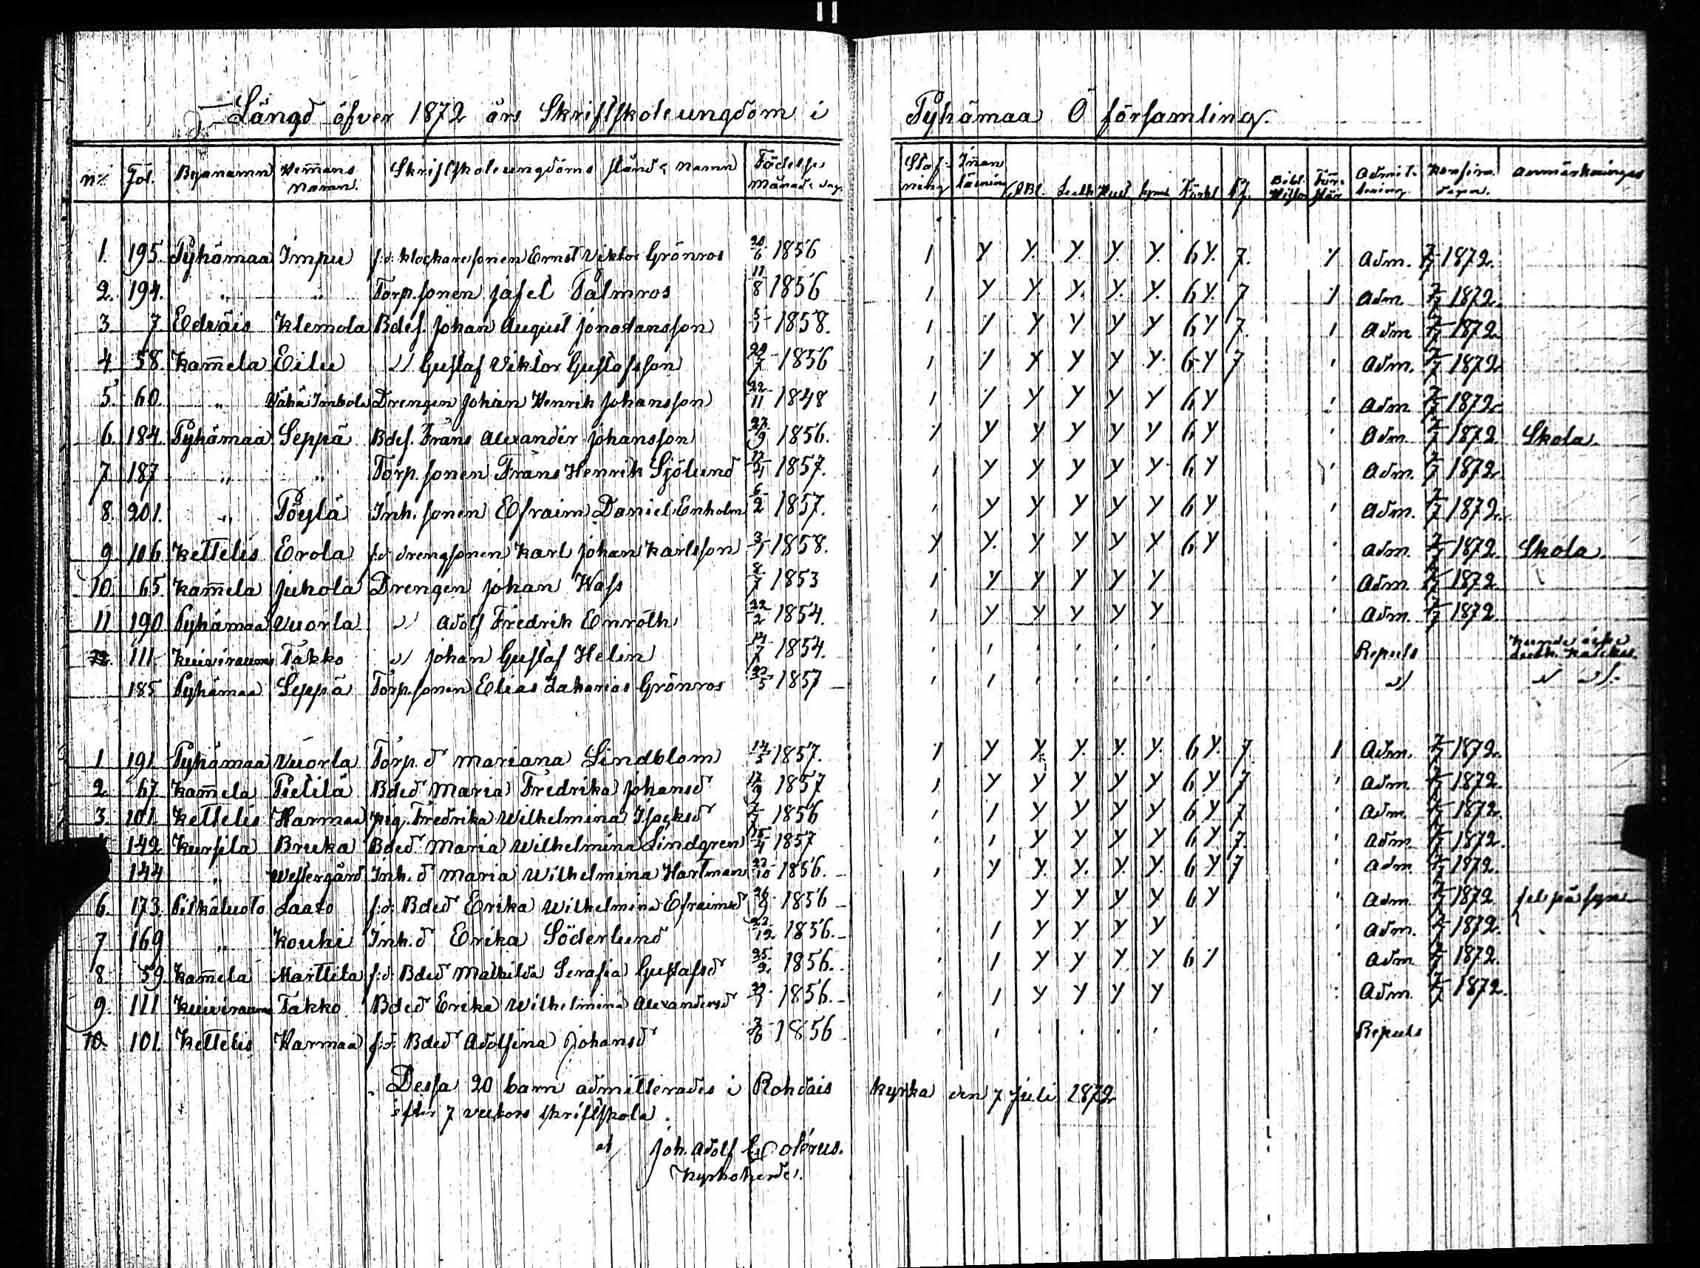 Längd öfver 1872 års Skriftskoleungdom i Pyhämaa Ö församling.
No Fol. Byanamn Hemans namn Skriftskoleungdoms stånd & namn Födelse månad dag Innan läsning Admittering anmärkningar
1. 195. Pyhämaa Impu f.d. klockaresonen Ernst Viktor Grönros 1856 1 y y. y. y. y 6 y. 7. Adm. 1872.
2. 194. " " Torp.sonen Jafet Palmros 11/8 1856 1 y y y. y y. 6 y. 7 Adm 1872.
3. 7 Edväis Klemola Bdes. Johan August Jonadansson 1858. 1 y y y y 6 y 7. Adm 1872
4. 58. Kam̄ela Eilu " Gustaf Viktor Gustafsson 1856 1 y y y y. 6 y 7 Adm. 1872
5. 60. " Vähä Drengen Johan Henrik Johansson 22/11 1848 1 y y y y 6 y Adm 1872.
6. 184. Pyhämaa Seppä Bdes. Frans Alexander Johansson 27/9 1856. y y y y y y 6 y Adm 1872 Skola.
7 187 " " Torp.sonen Frans Henrik Sjölund 1857. y y y y y 6 y Adm. 1872.
8. 201. " Pöylä Inh. sonen Efraim Daniel Enholm 6/2 1857. y y y y y 6 y Adm. 1872.
9. 106. Kettelis Erola f.d. drengsonen Karl Johan Karlsson 1858. y y. y. y y y 6 y Adm. 1872. Skola.
10. 65. Kam̄ela Juhola Drengen Johan Wass 1853 1 y y y y y Adm. 1872.
11 190 Pyhämaa Vuorla " Adolf Fredrik Enroth 22/2 1854. y y y y y Adm. 1872.
12. 111. Takko " Johan Gustaf Helin 1854. Repuls kunde icke
185 Pyhämaa Seppä Torp.sonen Elias Zakarias Grönros 1857 " " "
1 191. Pyhämaa Vuorla Torp. d Mariana Lindblom 1857. 1 y y. y. y. y. 6 y. 7 1 Adm. 1872.
2. 67. Kam̄ela Pietilä Bded Maria Fredrika Johansd 1857 y y y y y 6 y 7 Adm 1872.
3. 101. Kettelis Harmaa pig. Fredrika Wilhelmina 1856 1 y y y y 6 y 7 Adm. 1872.
142 Kursila Bruka Bded Maria Wilhelmina Lindgren 15/4 1857 1 y y y y 6 y 7. Adm. 1872.
144 " Westergård Inh. d Maria Wilhelmina Hartman 1856. y y. y. y. y 6 y 7 Adm. 1872.
6. 173. Pitkäluoto Laato f.d. Bded Erika Wilhelmina Efraimsd 26/8 1856 y y y y 6 y Adm 1872
7 169 " Kouhi Inh. d Erika Söderlund 23/12 1856. 1 y y y y Adm. 1872.
8 59. Kam̄ela Marttila f.d. Bded Mathilda Serafia Gustafsd 1856. 1 y y y y 6 y Adm 1872.
9. 111 Takko Bded Erika Wilhelmina Alexandersd 1856. 1 y y y y Adm. 1872.
10. 101. Kettelis Harmaa f.d. Bded Adolfina Johansd 1856 Repuls
Dessa 20 barn admitterades i Rohdais kyrka den 7 Juli 1872.
efter 7 veckors skriftskola.
af Joh. Adolf
Kyrkoherde.